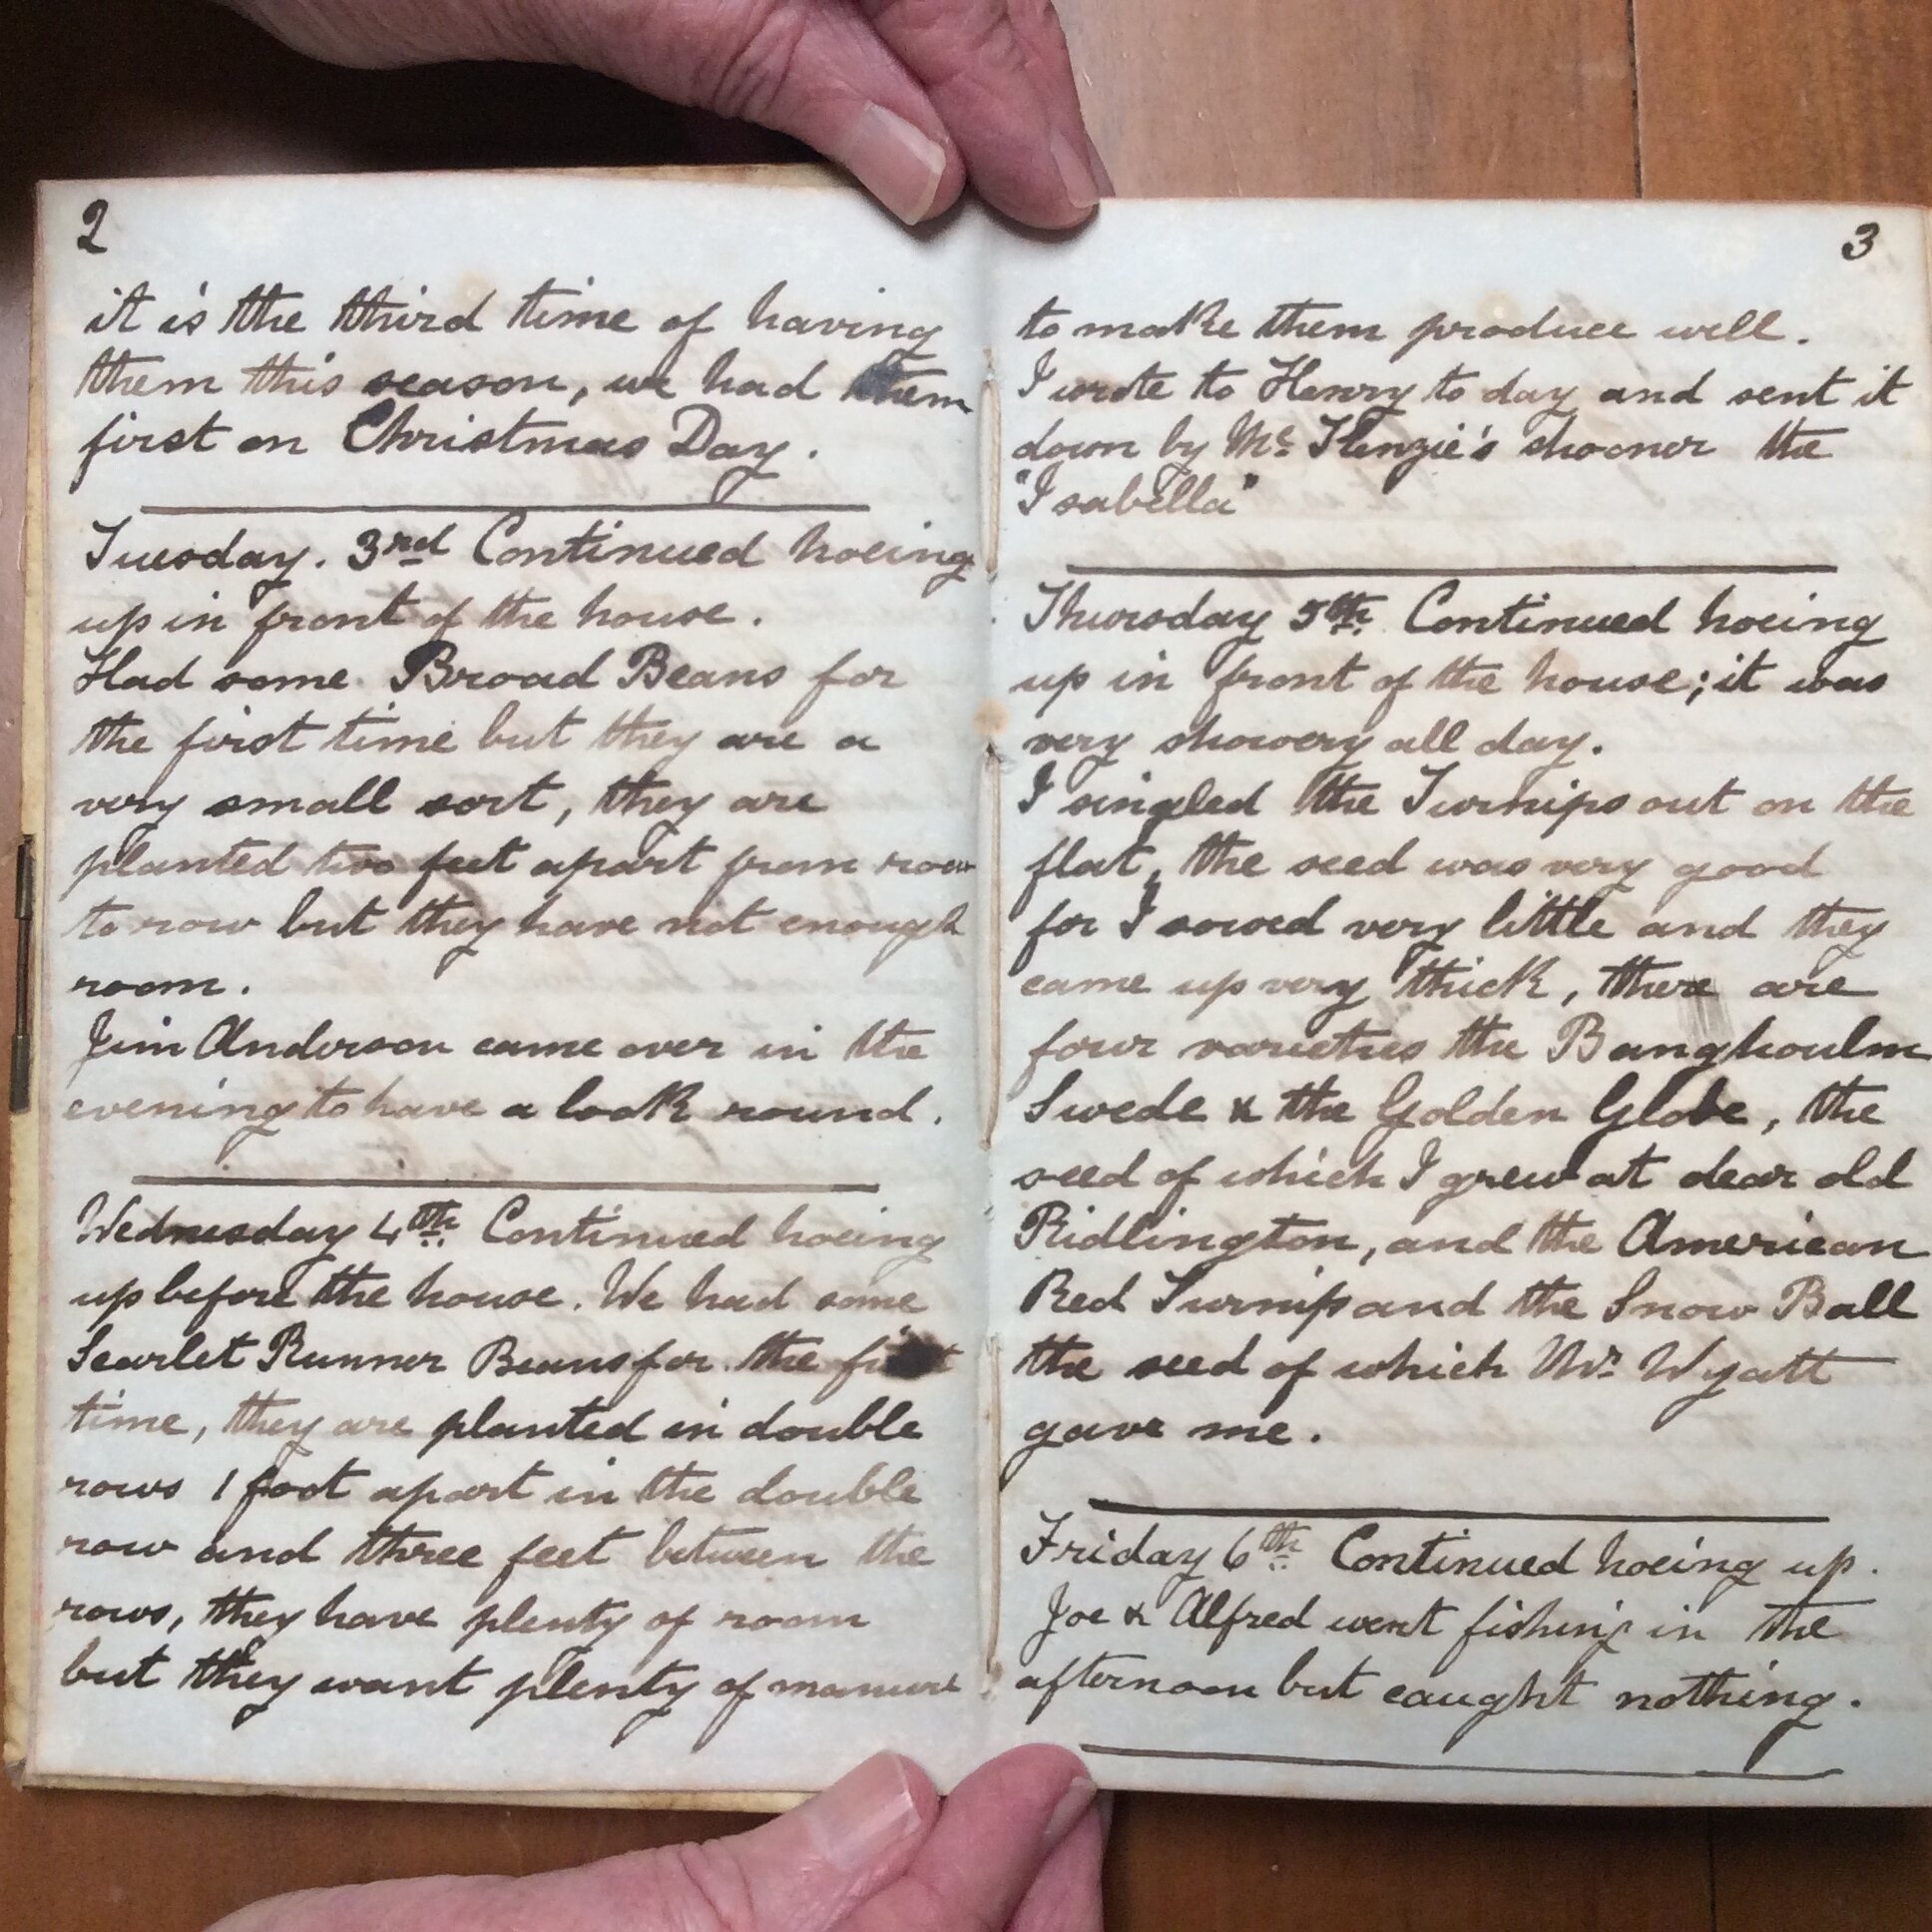 2
it is the third time of having
them this season, we had them
first on Christmas Day.
Tuesday. 3rd Continued hoeing
up in front of the house.
Had some Broad Beans for
the first time but they are a
very small sort, they are
planted two feet apart from row
to row but they have not enough
room.
Jim Anderson came over in the
evening to have a look round.
Wednesday 4th Continued hoeing
up before the house. We had some
Scarlet Runner Beans for the first
time, they are planted in double
rows 1 foot apart in the double
row and three feet between the
rows, they have plenty of room
but they want plenty of manure
3
to make them produce well.
I wrote to Henry to day and sent it
down by Mc Kenzie's shooner the
"Isabella"
Thursday 5th Continued hoeing
up in front of the house; it was
very showery all day.
I singled the Turnips out on the
flat, the seed was very good
for I sowed very little and they
came up very thick, there are
four varieties the Banghoulm
Swede & the Golden Globe, the
seed of which I grew at dear old
Ridlington, and the American
Red Turnip and the Snow Ball
the seed of which Mr Wyatt
gave me.
Friday 6th Continued hoeing up.
Joe & Alfred went fishing in the
afternoon but caught nothing.